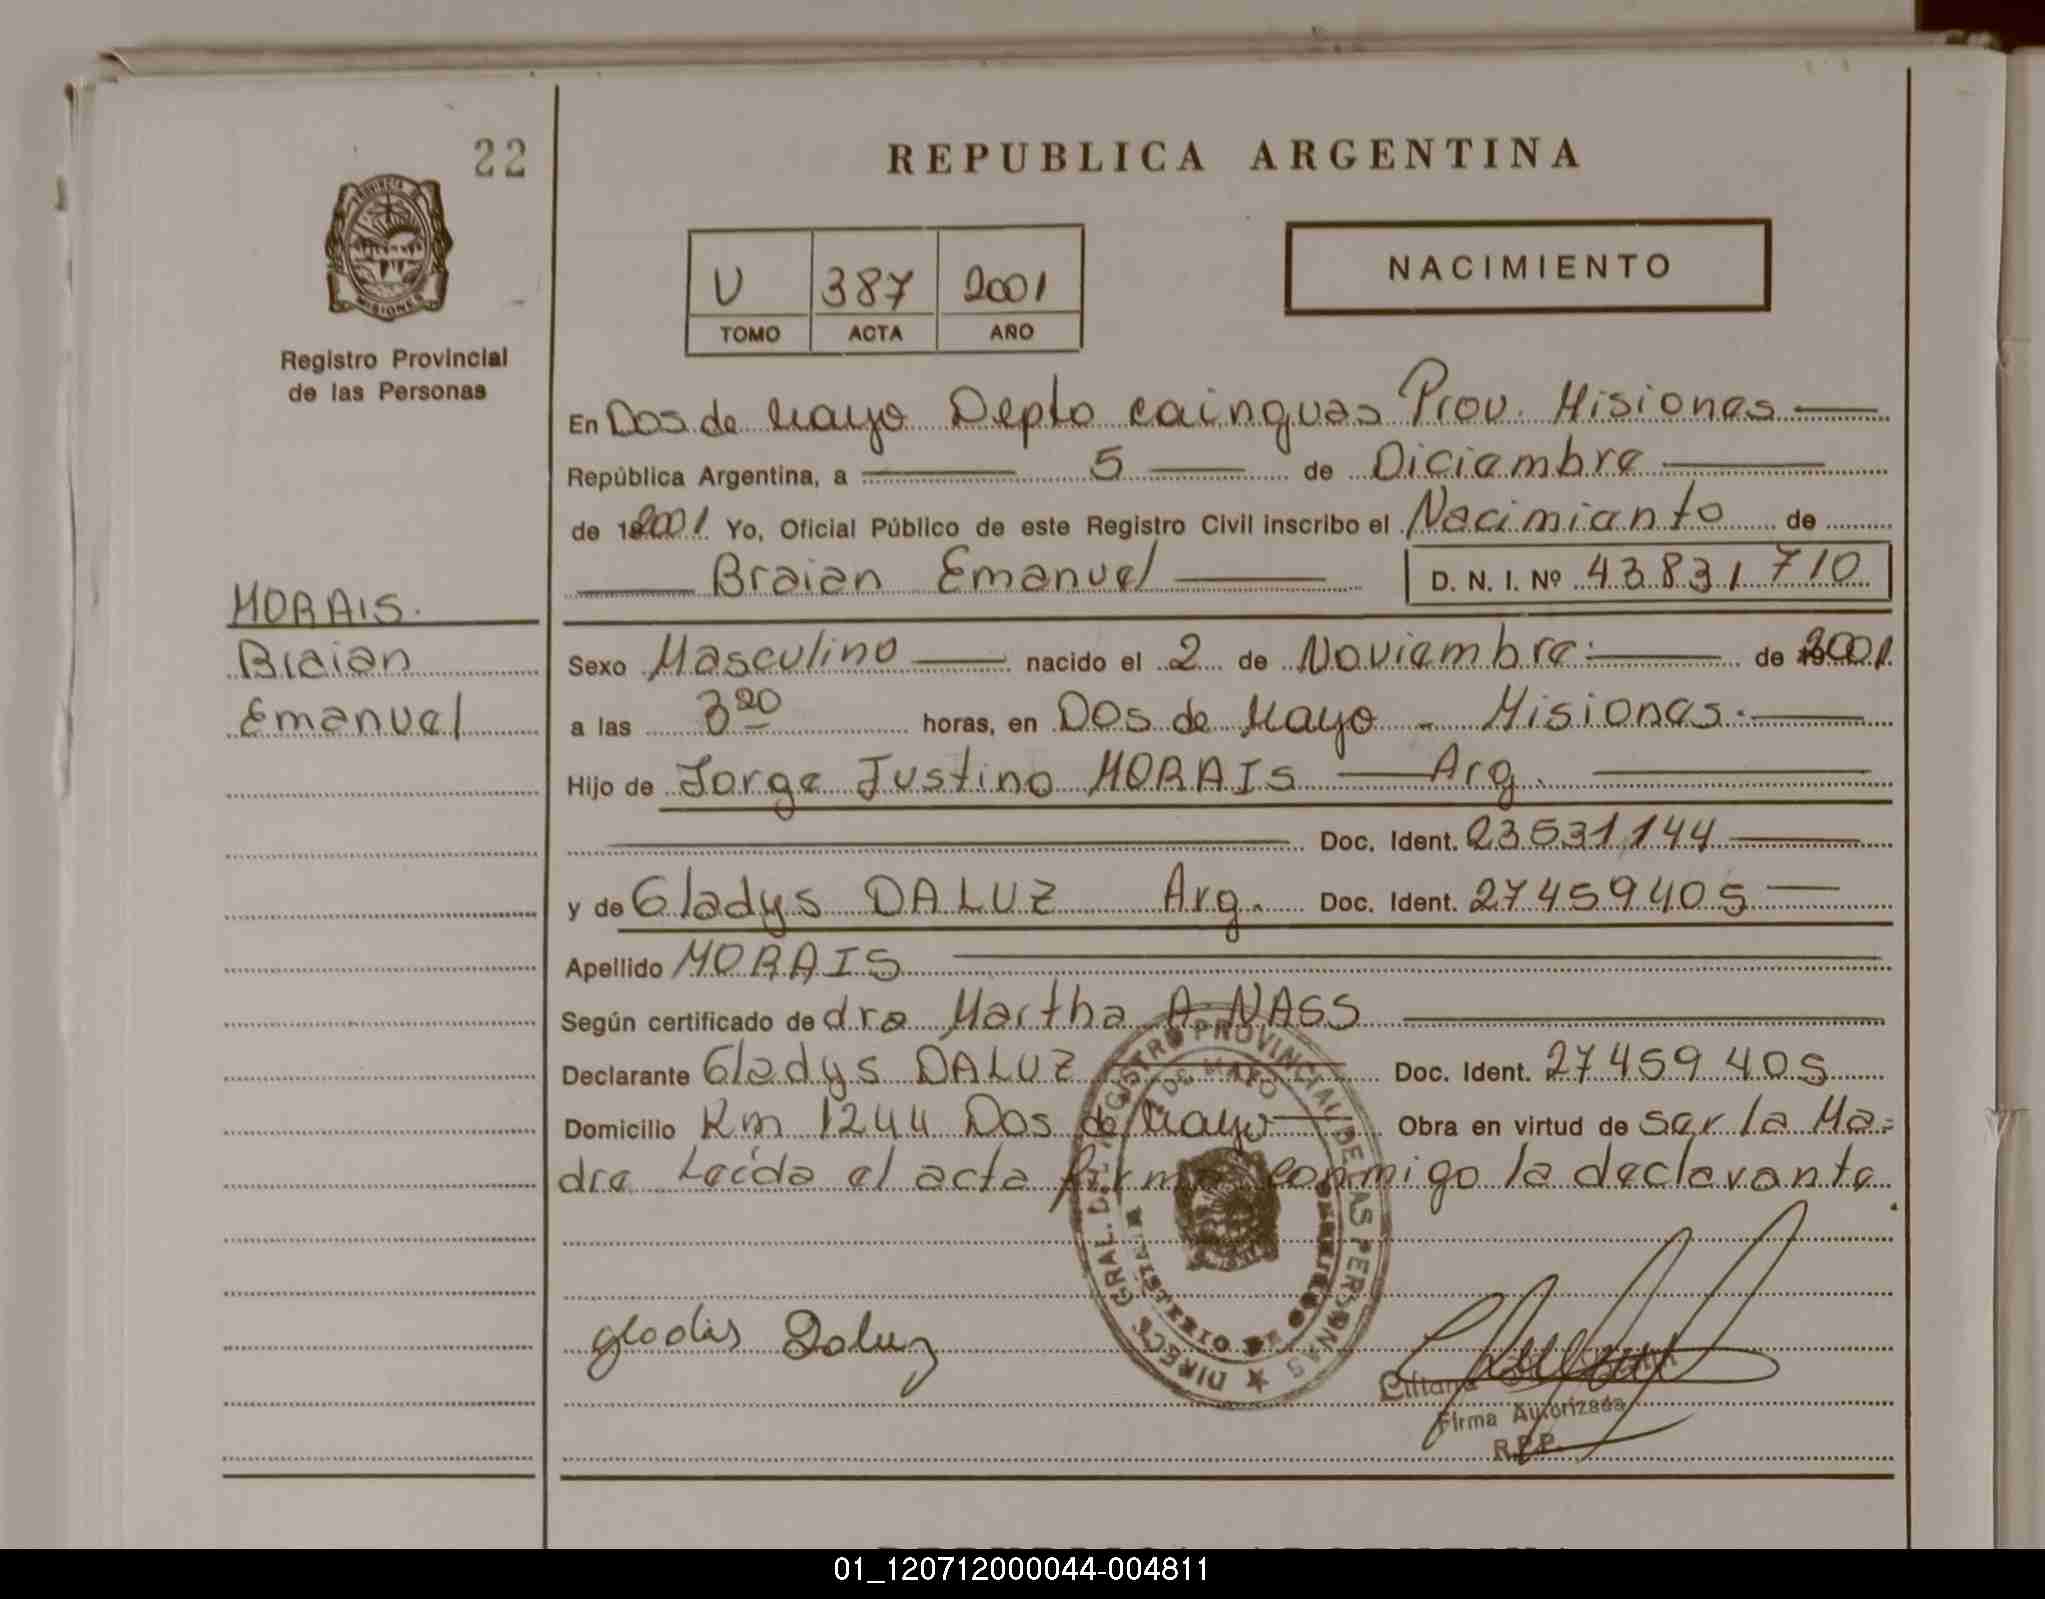 22
REPUBLICA ARGENTINA
U 387 2001
TOMO ACTA AÑO
NACIMIENTO
Registro Provincial
de las Personas
En Dos de Mayo Depto Cainguas Prov. Misiones
República Argentina, a 5 de Diciembre
de 2001. Yo, Oficial Público de este Registro Civil inscribo el Nacimiento de
Braian Emanuel D. N. I. Nº 43831710
MORAIS.
Braian
Emanuel
Sexo Masculino nacido el 2 de Noviembre de 2001.
a las 3 20 horas, en Dos de Mayo - Misiones.
Hijo de Jorge Justino MORAIS Arg.
Doc. Ident. 23531144
y de Gladys DALUZ Arg. Doc. Ident. 27459405
Apellido MORAIS
Según certificado de dra Martha A. NASS
Declarante Gladys DALUZ Doc. Ident. 27459405
Domicilio Km 1244 Dos de Mayo Obra en virtud de ser la Ma=
dre Leída el acta firma conmigo la declarante.
DIRECC. GRAL. DEL REGISTRO PROVINCIAL DE LAS PERSONAS
2 DE MAYO
gladis Daluz
Liliana
Firma Autorizada
R.P.P.
01_120712000044-004811